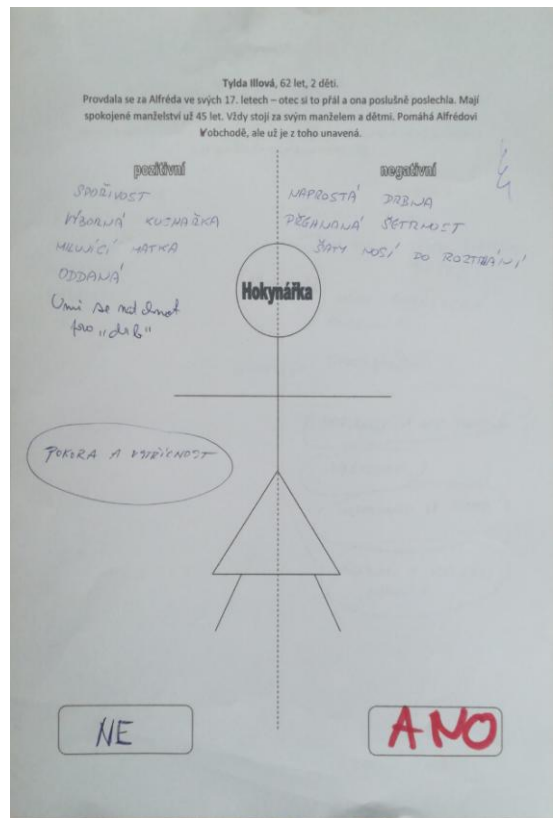 Tylda Illová, 62 let, 2 děti.
Provdala se za Alfréda ve svých 17. letech – otec si to přál a ona poslušně poslechla. Mají
spokojené manželství už 45 let. Vždy stojí za svým manželem a dětmi. Pomáhá Alfrédovi
v obchodě, ale už je z toho unavená.
pozitivní
negativní
SPOŘIVOST
VÝBORNÁ KUCHAŘKA
MILUJÍCÍ MATKA
ODDANÁ
Umí se nadchnot
pro "drb"
NAPROSTÁ DRBNA
PŘEHNANÁ ŠETRNOST
ŠATY NOSÍ DO ROZTRHÁNÍ
Hokynářka
POKORA A VSTŘÍCNOST
NE
ANO